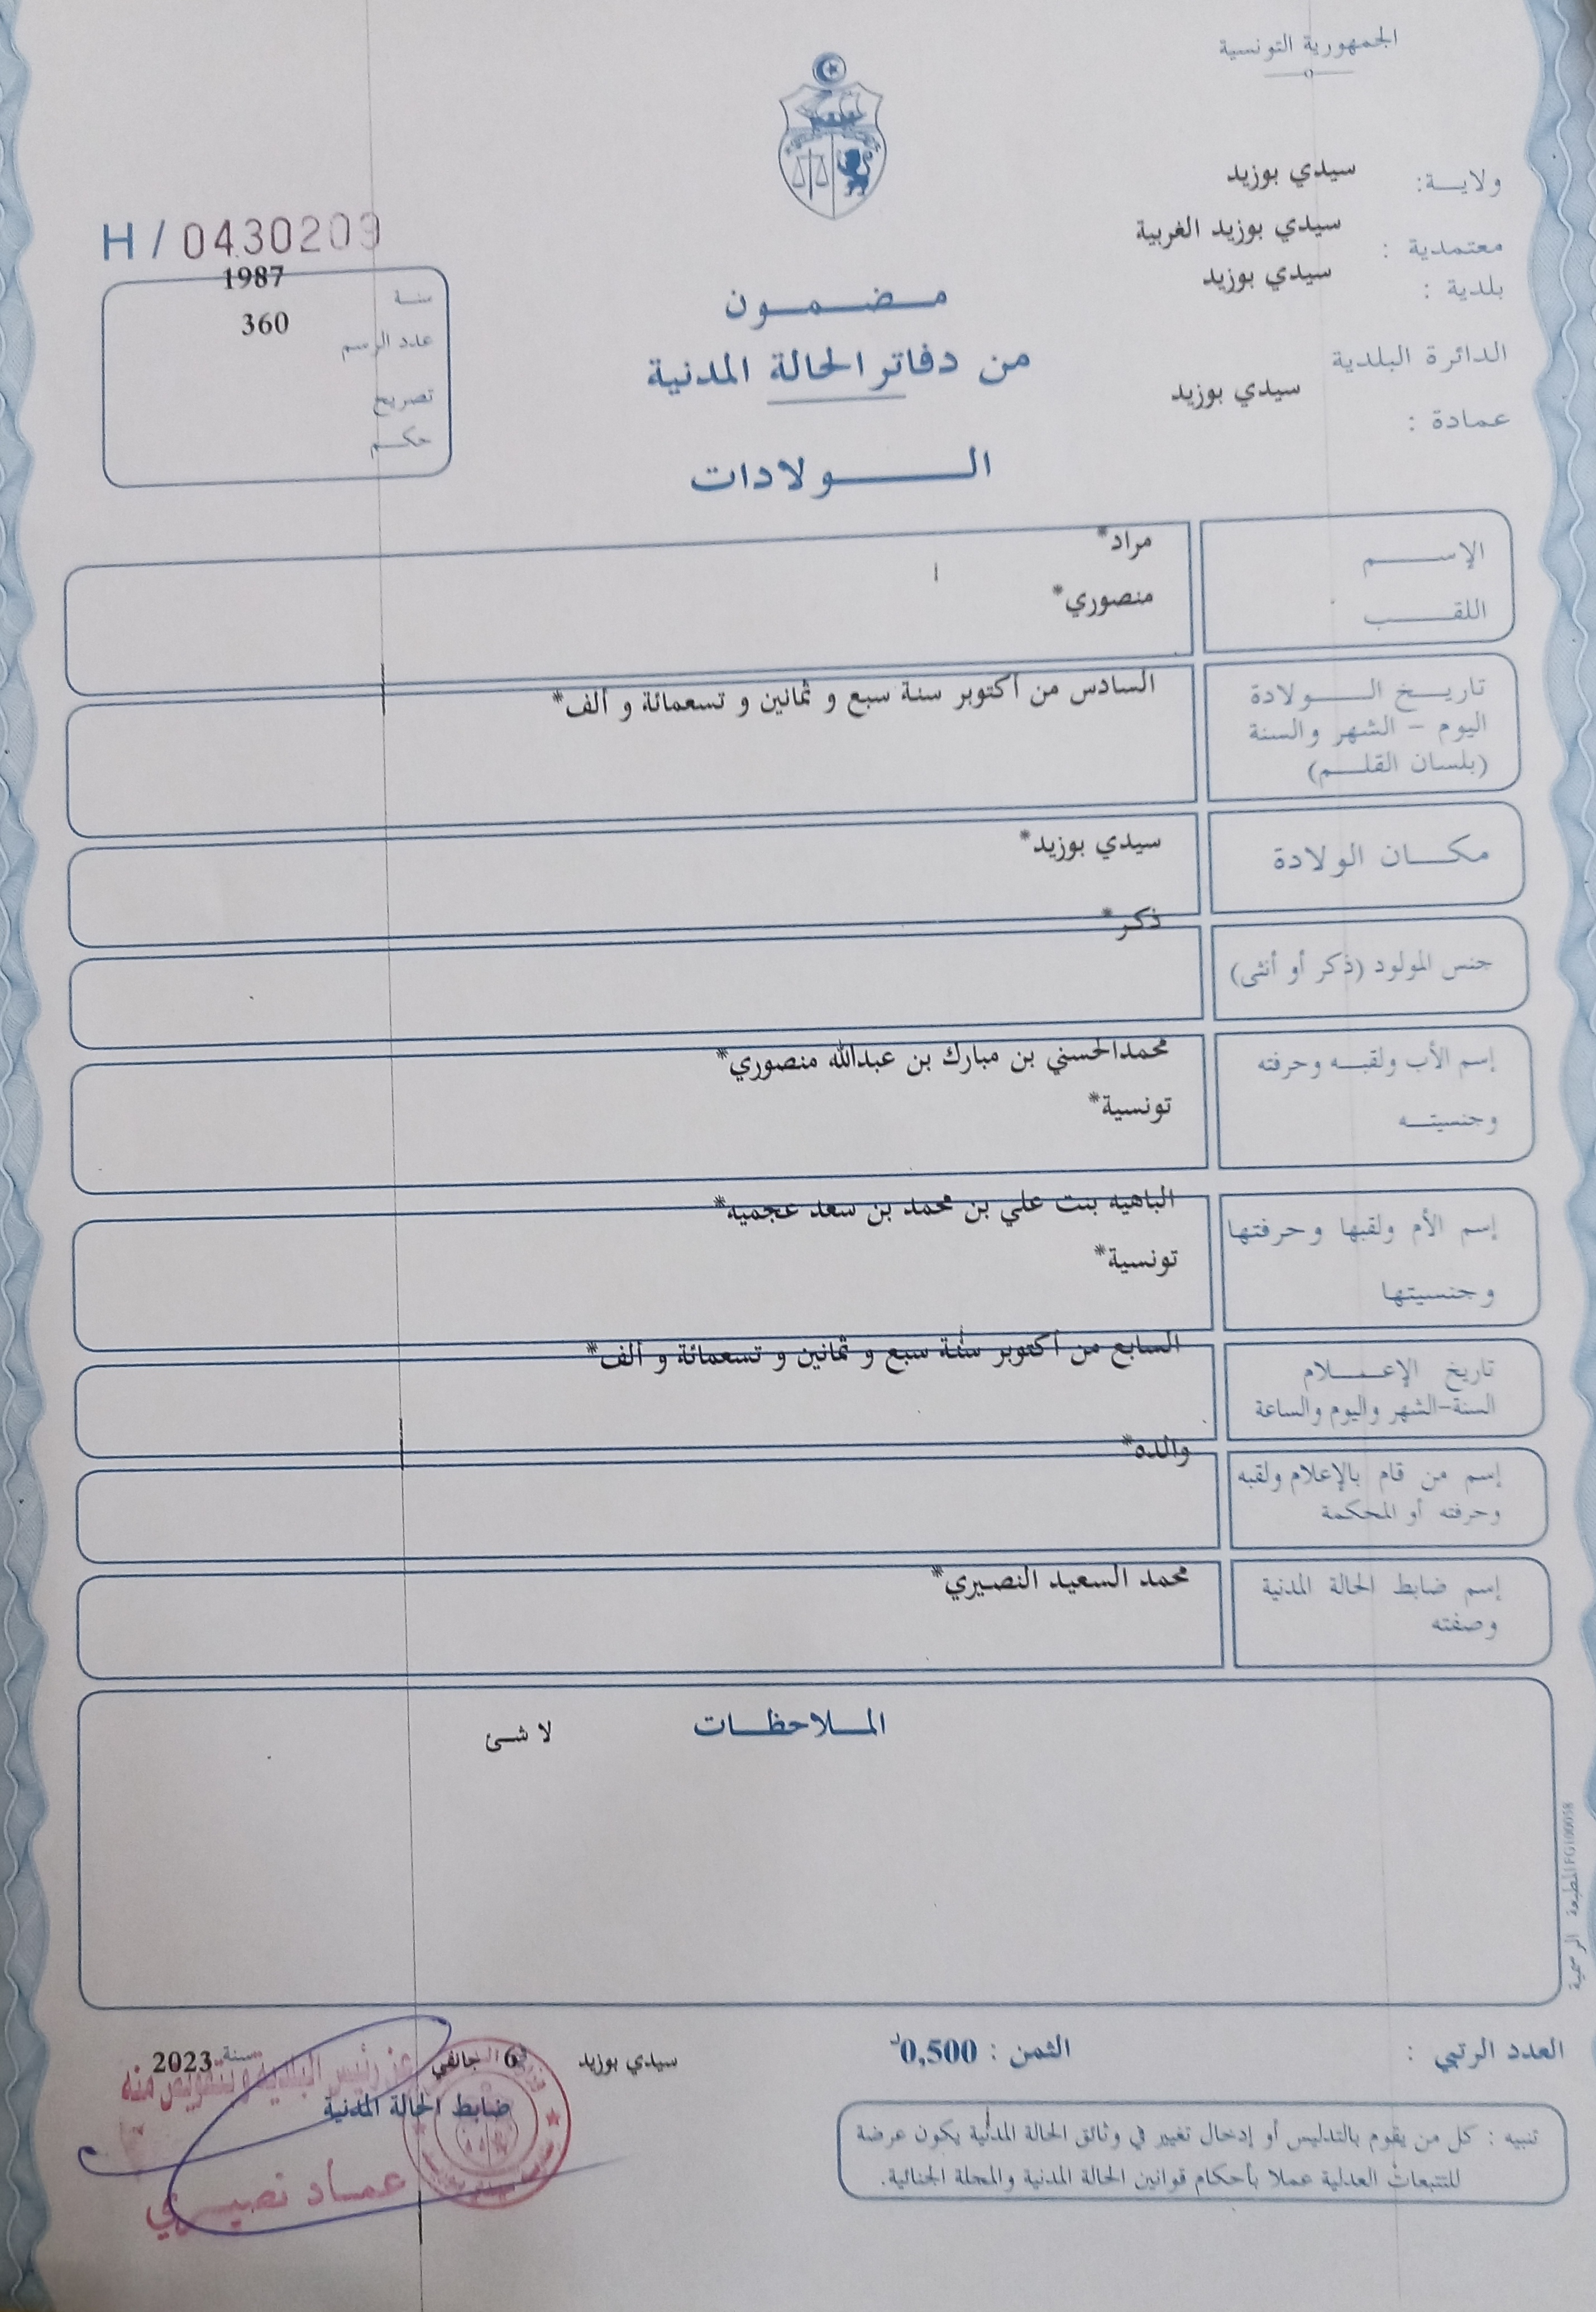 الجمهورية التونسية
ولاية: سيدي بوزيد
معتمدية : سيدي بوزيد الغربية
بلدية : سيدي بوزيد
الدائرة البلدية
عمادة : سيدي بوزيد
H / 0430209
سنة 1987
عدد الرسم 360
تصريح
حكم
مضمون
من دفاتر الحالة المدنية
الولادات
الإسم مراد*
اللقب منصوري*
تاريخ الولادة السادس من أكتوبر سنة سبع و ثمانين و تسعمائة و ألف*
اليوم - الشهر والسنة
(بلسان القلم)
مكان الولادة سيدي بوزيد*
جنس المولود (ذكر أو أنثى) ذكر*
إسم الأب ولقبه وحرفته محمدالحسني بن مبارك بن عبدالله منصوري*
وجنسيته تونسية*
إسم الأم ولقبها وحرفتها الباهيه بنت علي بن محمد بن سعد عجميه*
وجنسيتها تونسية*
تاريخ الإعلام السابع من أكتوبر سنة سبع و ثمانين و تسعمائة و ألف*
السنة-الشهر واليوم والساعة
إسم من قام بالإعلام ولقبه والده*
وحرفته أو المحكمة
إسم ضابط الحالة المدنية محمد السعيد النصيري*
وصفته
الملاحظات لا شئ
المطبعة الرسمية
العدد الرتبي :
الثمن : 0,500د
سيدي بوزيد 6 جانفي سنة 2023
عن رئيس البلدية وبتفويض منه
ضابط الحالة المدنية
عماد نصيري
تنبيه : كل من يقوم بالتدليس أو إدخال تغيير في وثائق الحالة المدنية يكون عرضة
للتتبعات العدلية عملا بأحكام قوانين الحالة المدنية والمجلة الجنائية.